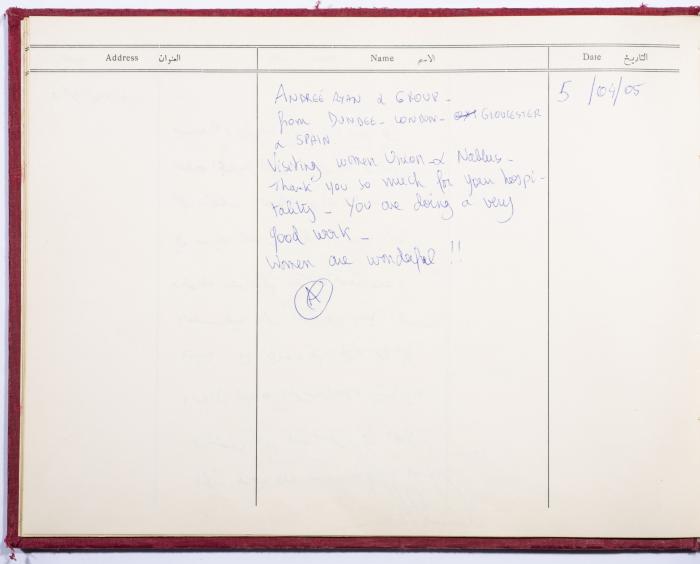 Address العنوان Name الاسم Date التاريخ
ANDREÉ RYAN & GROUP - 5/04/05
from DUNDEE - LONDON - GLOUCESTER
& SPAIN
Visiting women Union & Nablus -
thank you so much for your hospi-
tality - You are doing a very
good work -
Women are wonderful !!
A